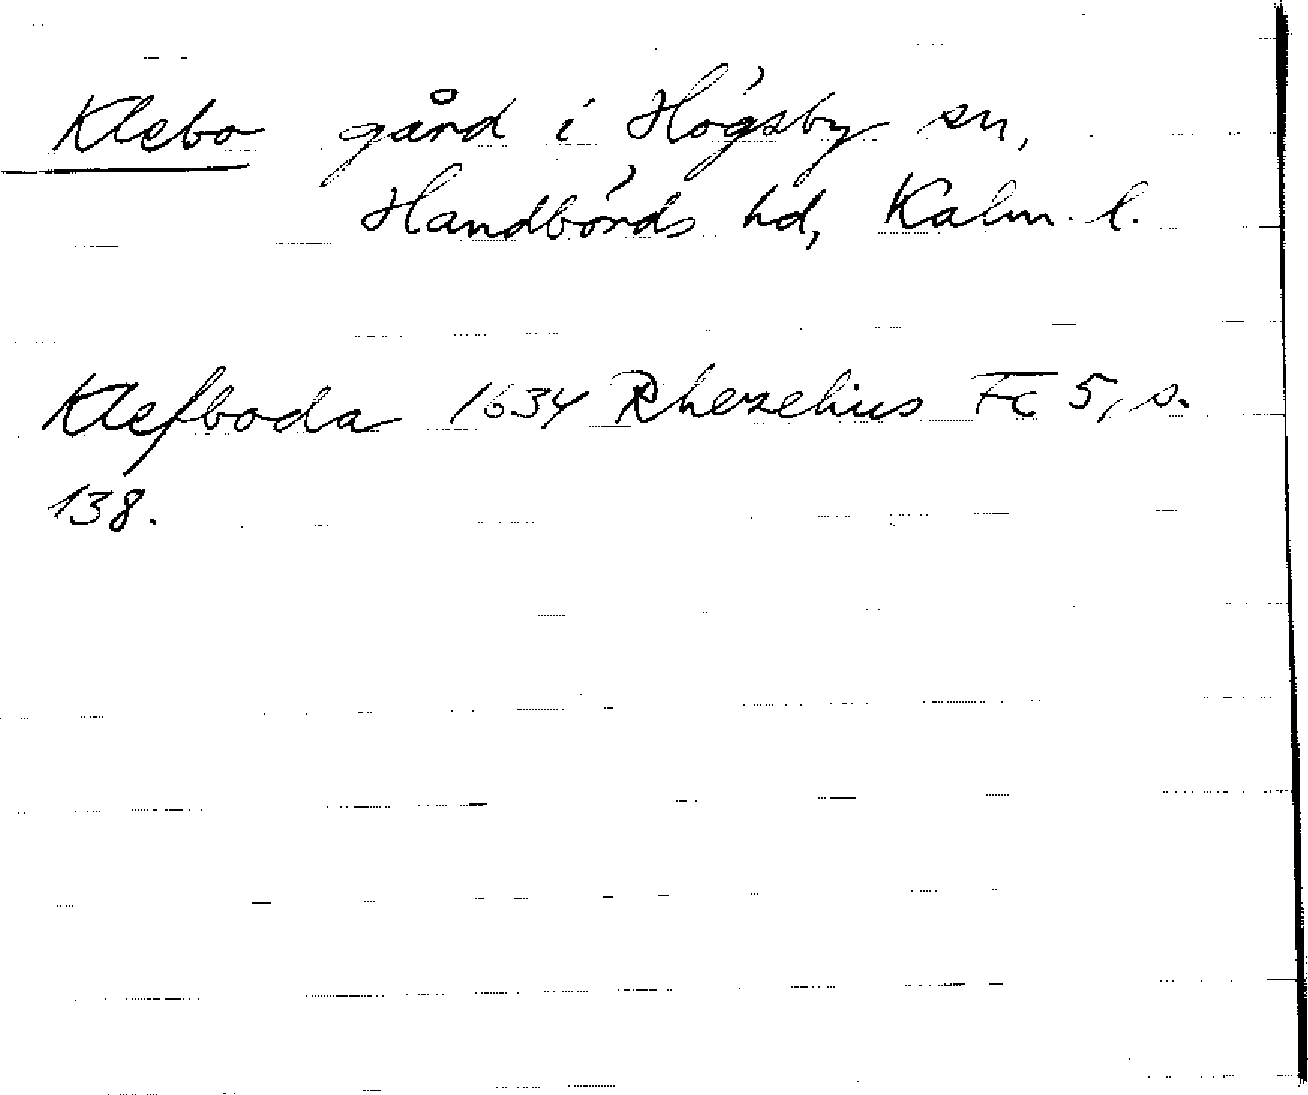 Klebo gård i Högsby sn,
Handbörds hd, Kalm. l.
Klefboda 1634 Rhezelius Fc 5, s.
138.